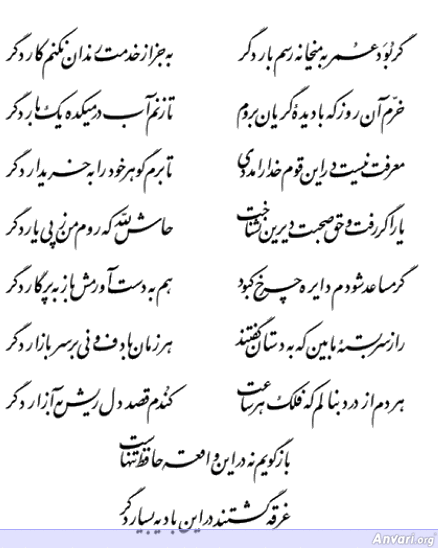 گر بود عمر به میخانه رسم بار دگر به جز از خدمت رندان نکنم کار دگر
خرّم آن روز که با دیدهٔ گریان بروم تا زنم آب در میکده یک بار دگر
معرفت نیست در این قوم خدا را مددی تا برم گوهر خود را به خریدار دگر
یار اگر رفت و حق صحبت دیرین نشناخت حاش لله که روم من ز پی یار دگر
گر مساعد شودم دایره چرخ کبود هم به دست آورمش باز به پرگار دگر
راز سربسته ما بین که به دستان گفتند هر زمان با دف و نی بر سر بازار دگر
هر دم از درد بنالم که فلک هر ساعت کندم قصد دل ریش به آزار دگر
بازگویم نه در این واقعه حافظ تنهاست
غرقه گشتند در این بادیه بسیار دگر
Anvari.org